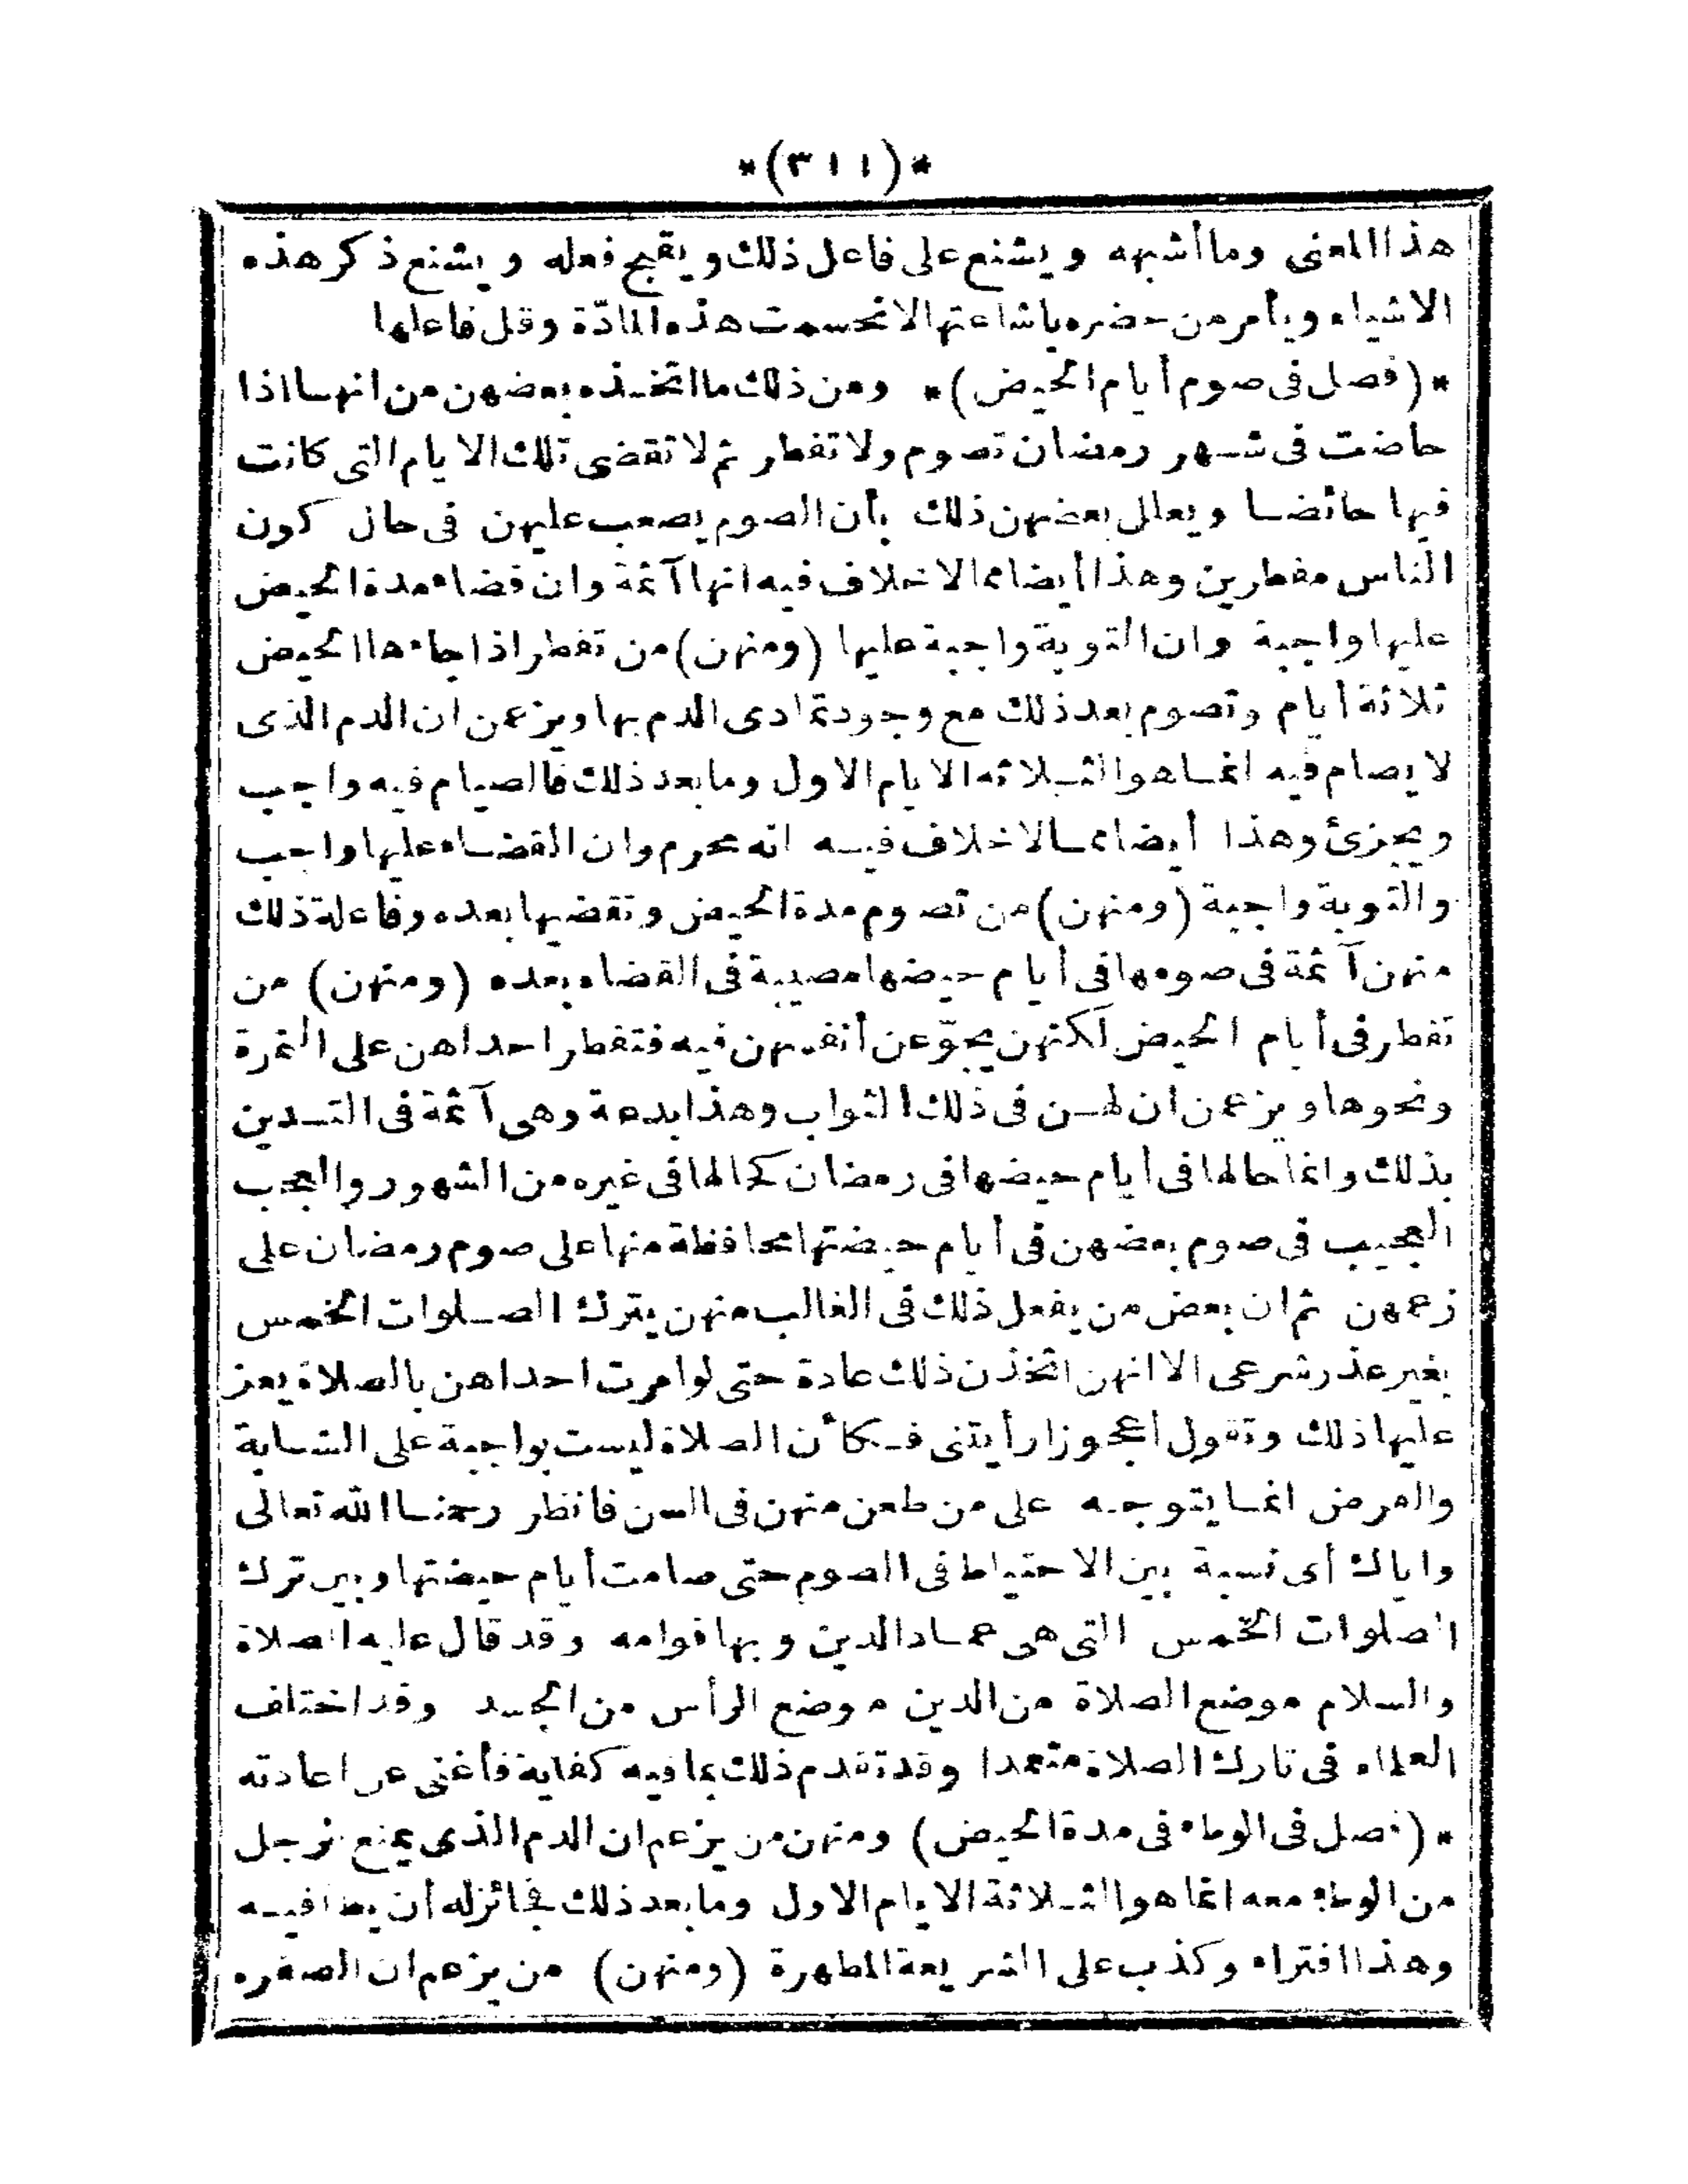 *(٣١١)*
هذا المعنى وما أشبهه ويشنع على فاعل ذلك ويقبح فعله ويشنع ذكر هذه
الاشياء ويأمر من حضره باشاعتها لانحسمت هذه المادّة وقل فاعلها
*(فصل فى صوم أيام الحيض)* ومن ذلك ما اتخذه بعضهن من انها اذا
حاضت فى شهر رمضان تصوم ولا تفطر ثم لا تقضى تلك الايام التى كانت
فيها حائضا ويعلل بعضهن ذلك بأن الصوم يصعب عليهن فى حال كون
الناس مفطرين وهذا أيضا مما لا خلاف فيه انها آثمة وان قضاء مدة الحيض
عليها واجبة وان التوبة واجبة عليها (ومنهن) من تفطر اذا جاءها الحيض
ثلاثة أيام وتصوم بعد ذلك مع وجود تمادى الدم بها ويزعمن ان الدم الذى
لا يصام فيه انما هو الثلاثه الايام الاول وما بعد ذلك فالصيام فيه واجب
ويجزئ وهذا أيضا مما لا خلاف فيه انه محرم وان القضاء عليها واجب
والتوبة واجبة (ومنهن) من تصوم مدة الحيض وتقضيها بعده وفاعلة ذلك
منهن آثمة فى صومها فى أيام حيضها مصيبة فى القضاء بعده (ومنهن) من
تفطر فى أيام الحيض لكنهن يجوّعن أنفسهن فيه فتفطر احداهن على التمرة
ونحوها ويزعمن ان لهن فى ذلك الثواب وهذا بدعة وهى آثمة فى التدين
بذلك وانما حالها فى أيام حيضها فى رمضان كحالها فى غيره من الشهور والعجب
العجيب فى صوم بعضهن فى أيام حيضتها محافظة منها على صوم رمضان على
زعمهن ثم ان بعض من يفعل ذلك فى الغالب منهن يترك الصلوات الخمس
بغير عذر شرعى الا انهن اتخذن ذلك عادة حتى لو امرت احداهن بالصلاة يعز
عليها ذلك وتقول أعجوزا رأيتنى فكأن الصلاة ليست بواجبة على الشابة
والفرض انما يتوجه على من طعن منهن فى السن فانظر رحمنا الله تعالى
واياك أى نسبة بين الاحتياط فى الصوم حتى صامت أيام حيضتها وبين ترك
الصلوات الخمس التى هى عماد الدين وبها قوامه وقد قال عليه الصلاة
والسلام موضع الصلاة من الدين موضع الرأس من الجسد وقد اختلف
العلماء فى تارك الصلاة متعمدا وقد تقدم ذلك بما فيه كفاية فأغنى عن اعادته
*(فصل فى الوطء فى مدة الحيض) ومنهن من يزعم ان الدم الذى يمنع الرجل
من الوطء معه انما هو الثلاثة الايام الاول وما بعد ذلك فجائز له أن يطأ فيه
وهذا افتراء وكذب على الشريعة المطهرة (ومنهن) من يزعم ان الصفره